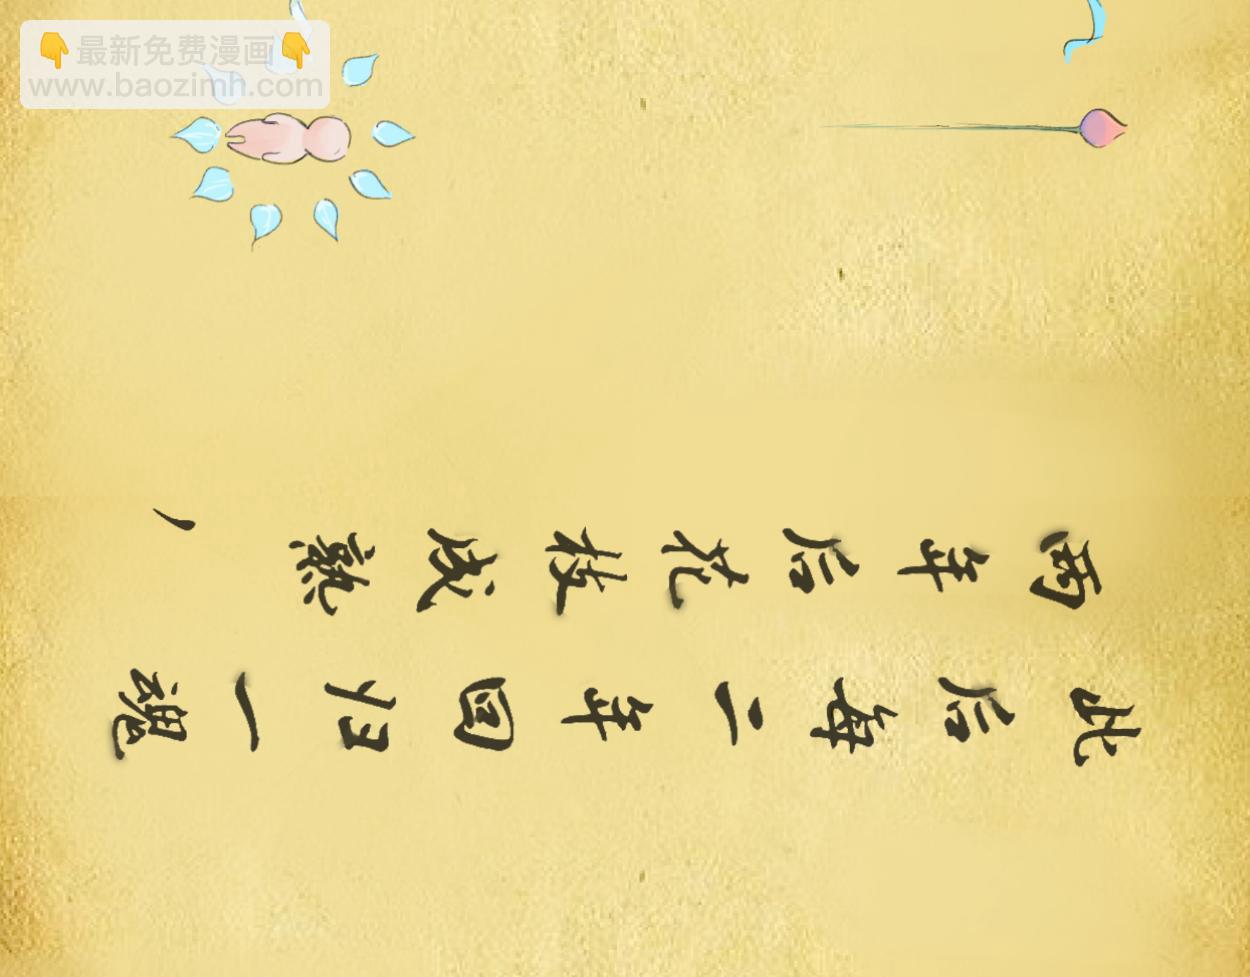 👇最新免费漫画👇
www.baozimh.com
两年后花枝成熟，
此后每二年回归一魂